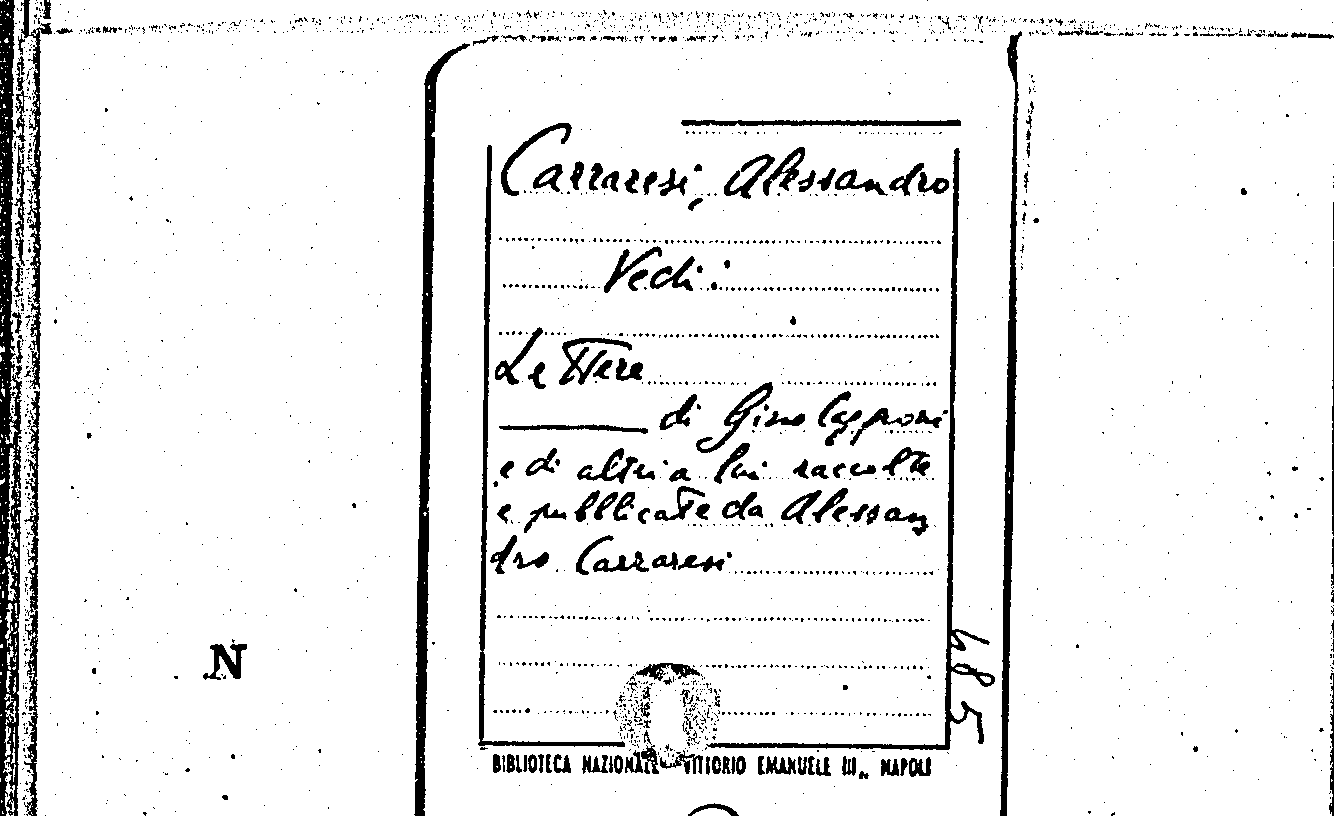 Carraresi, Alessandro
Vedi:
Lettere
di Gino Capponi
e di altri a lui raccolte
e pubblicate da Alessan
dro Carraresi
485
N
BIBLIOTECA NAZIONALE VITTORIO EMANUELE III„ NAPOLI